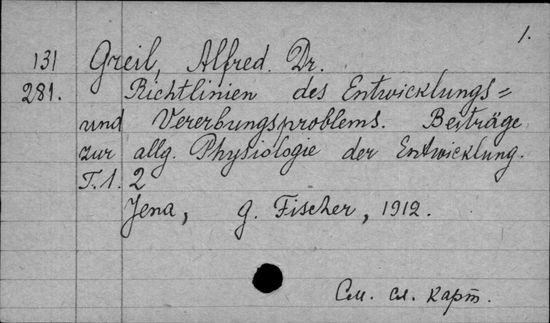 1.
131 Greil, Alfred. Dr.
281. Richtlinien des Entwicklungs=
und Vererbungsproblems. Beiträge
zur allg. Physiologie der Entwicklung.
T.1. 2
Jena, G. Fischer, 1912.
См. сл. карт.